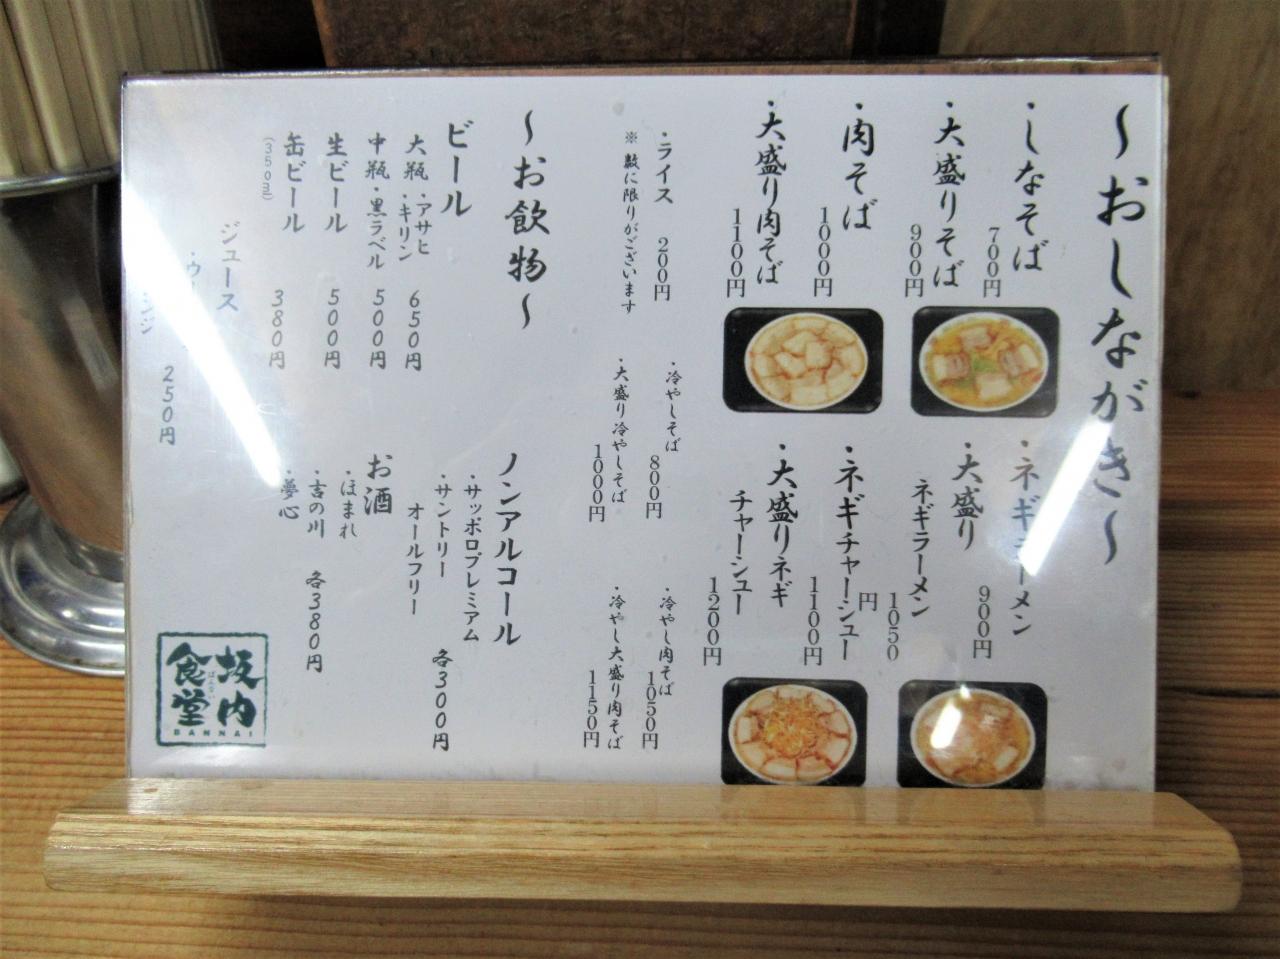 ～おしながき～
・しなそば
700円
・大盛りそば
900円
・肉そば
1000円
・大盛り肉そば
1100円
・ネギラーメン
900円
・大盛り
ネギラーメン
1050円
・ネギチャーシュー
1100円
・大盛りネギ
チャーシュー
1200円
・ライス 200円
※ 数に限りがございます
・冷やしそば
800円
・大盛り冷やしそば
1000円
・冷やし肉そば
1050円
・冷やし大盛り肉そば
1150円
～お飲物～
ビール
大瓶・アサヒ
・キリン 650円
中瓶・黒ラベル 500円
生ビール 500円
缶ビール 380円
(350ml)
ジュース
250円
ノンアルコール
・サッポロプレミアム
・サントリー
オールフリー
各300円
お酒
・ほまれ
・吉の川
・夢心
各380円
坂内
ばんない
食堂
BANNAI